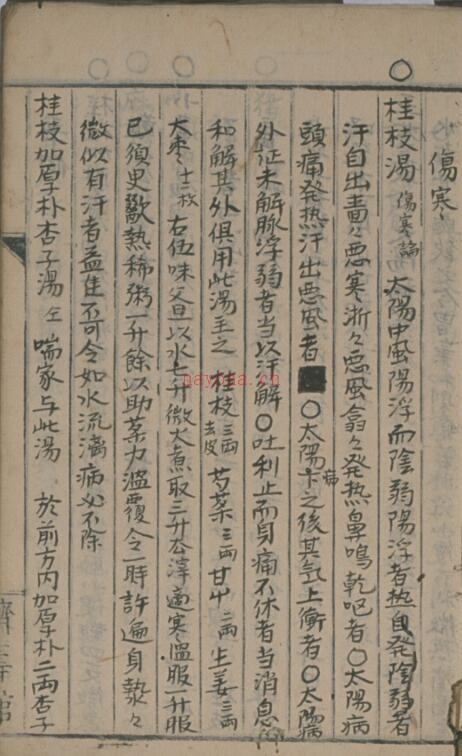 傷寒
桂枝湯 傷寒論 太陽中風陽浮而陰弱陽浮者热自発陰弱者
汗自出嗇々悪寒淅々悪風翕々発热鼻鳴乾呕者〇太陽病
頭痛発热汗出悪風者 〇太陽病下之後其気上衝者〇太陽病
外征未解脉浮弱者当以汗解〇吐利止而身痛不休者当消息
和解其外俱用此湯主之 桂枝三両去皮 芍薬三両 甘艸二両 生姜三両
大枣十二枚 右伍味㕮咀以水七升微火煮取三升去滓適寒温服一升服
已須臾歠熱稀粥一升餘以助薬力温覆令一時許遍身漐々
微似有汗者益佳不可令如水流漓病必不除
桂枝加厚朴杏子湯 仝 喘家与此湯 於前方内加厚朴二両杏子